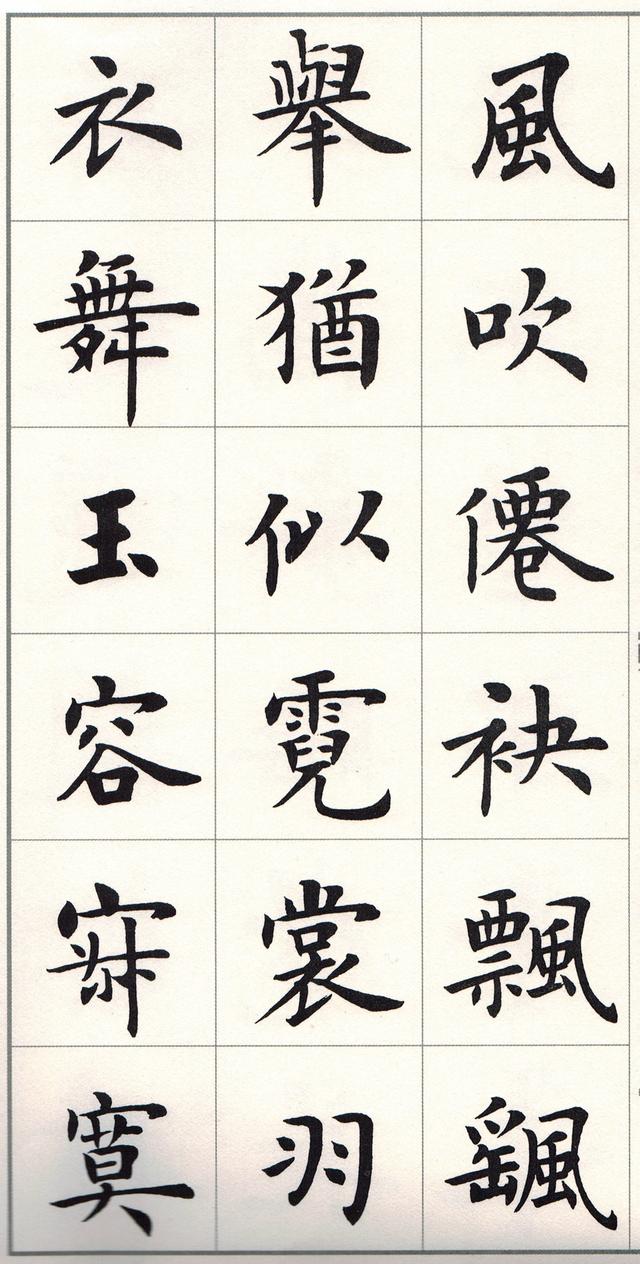 風吹僊袂飄飖
舉猶似霓裳羽
衣舞玉容寂寞